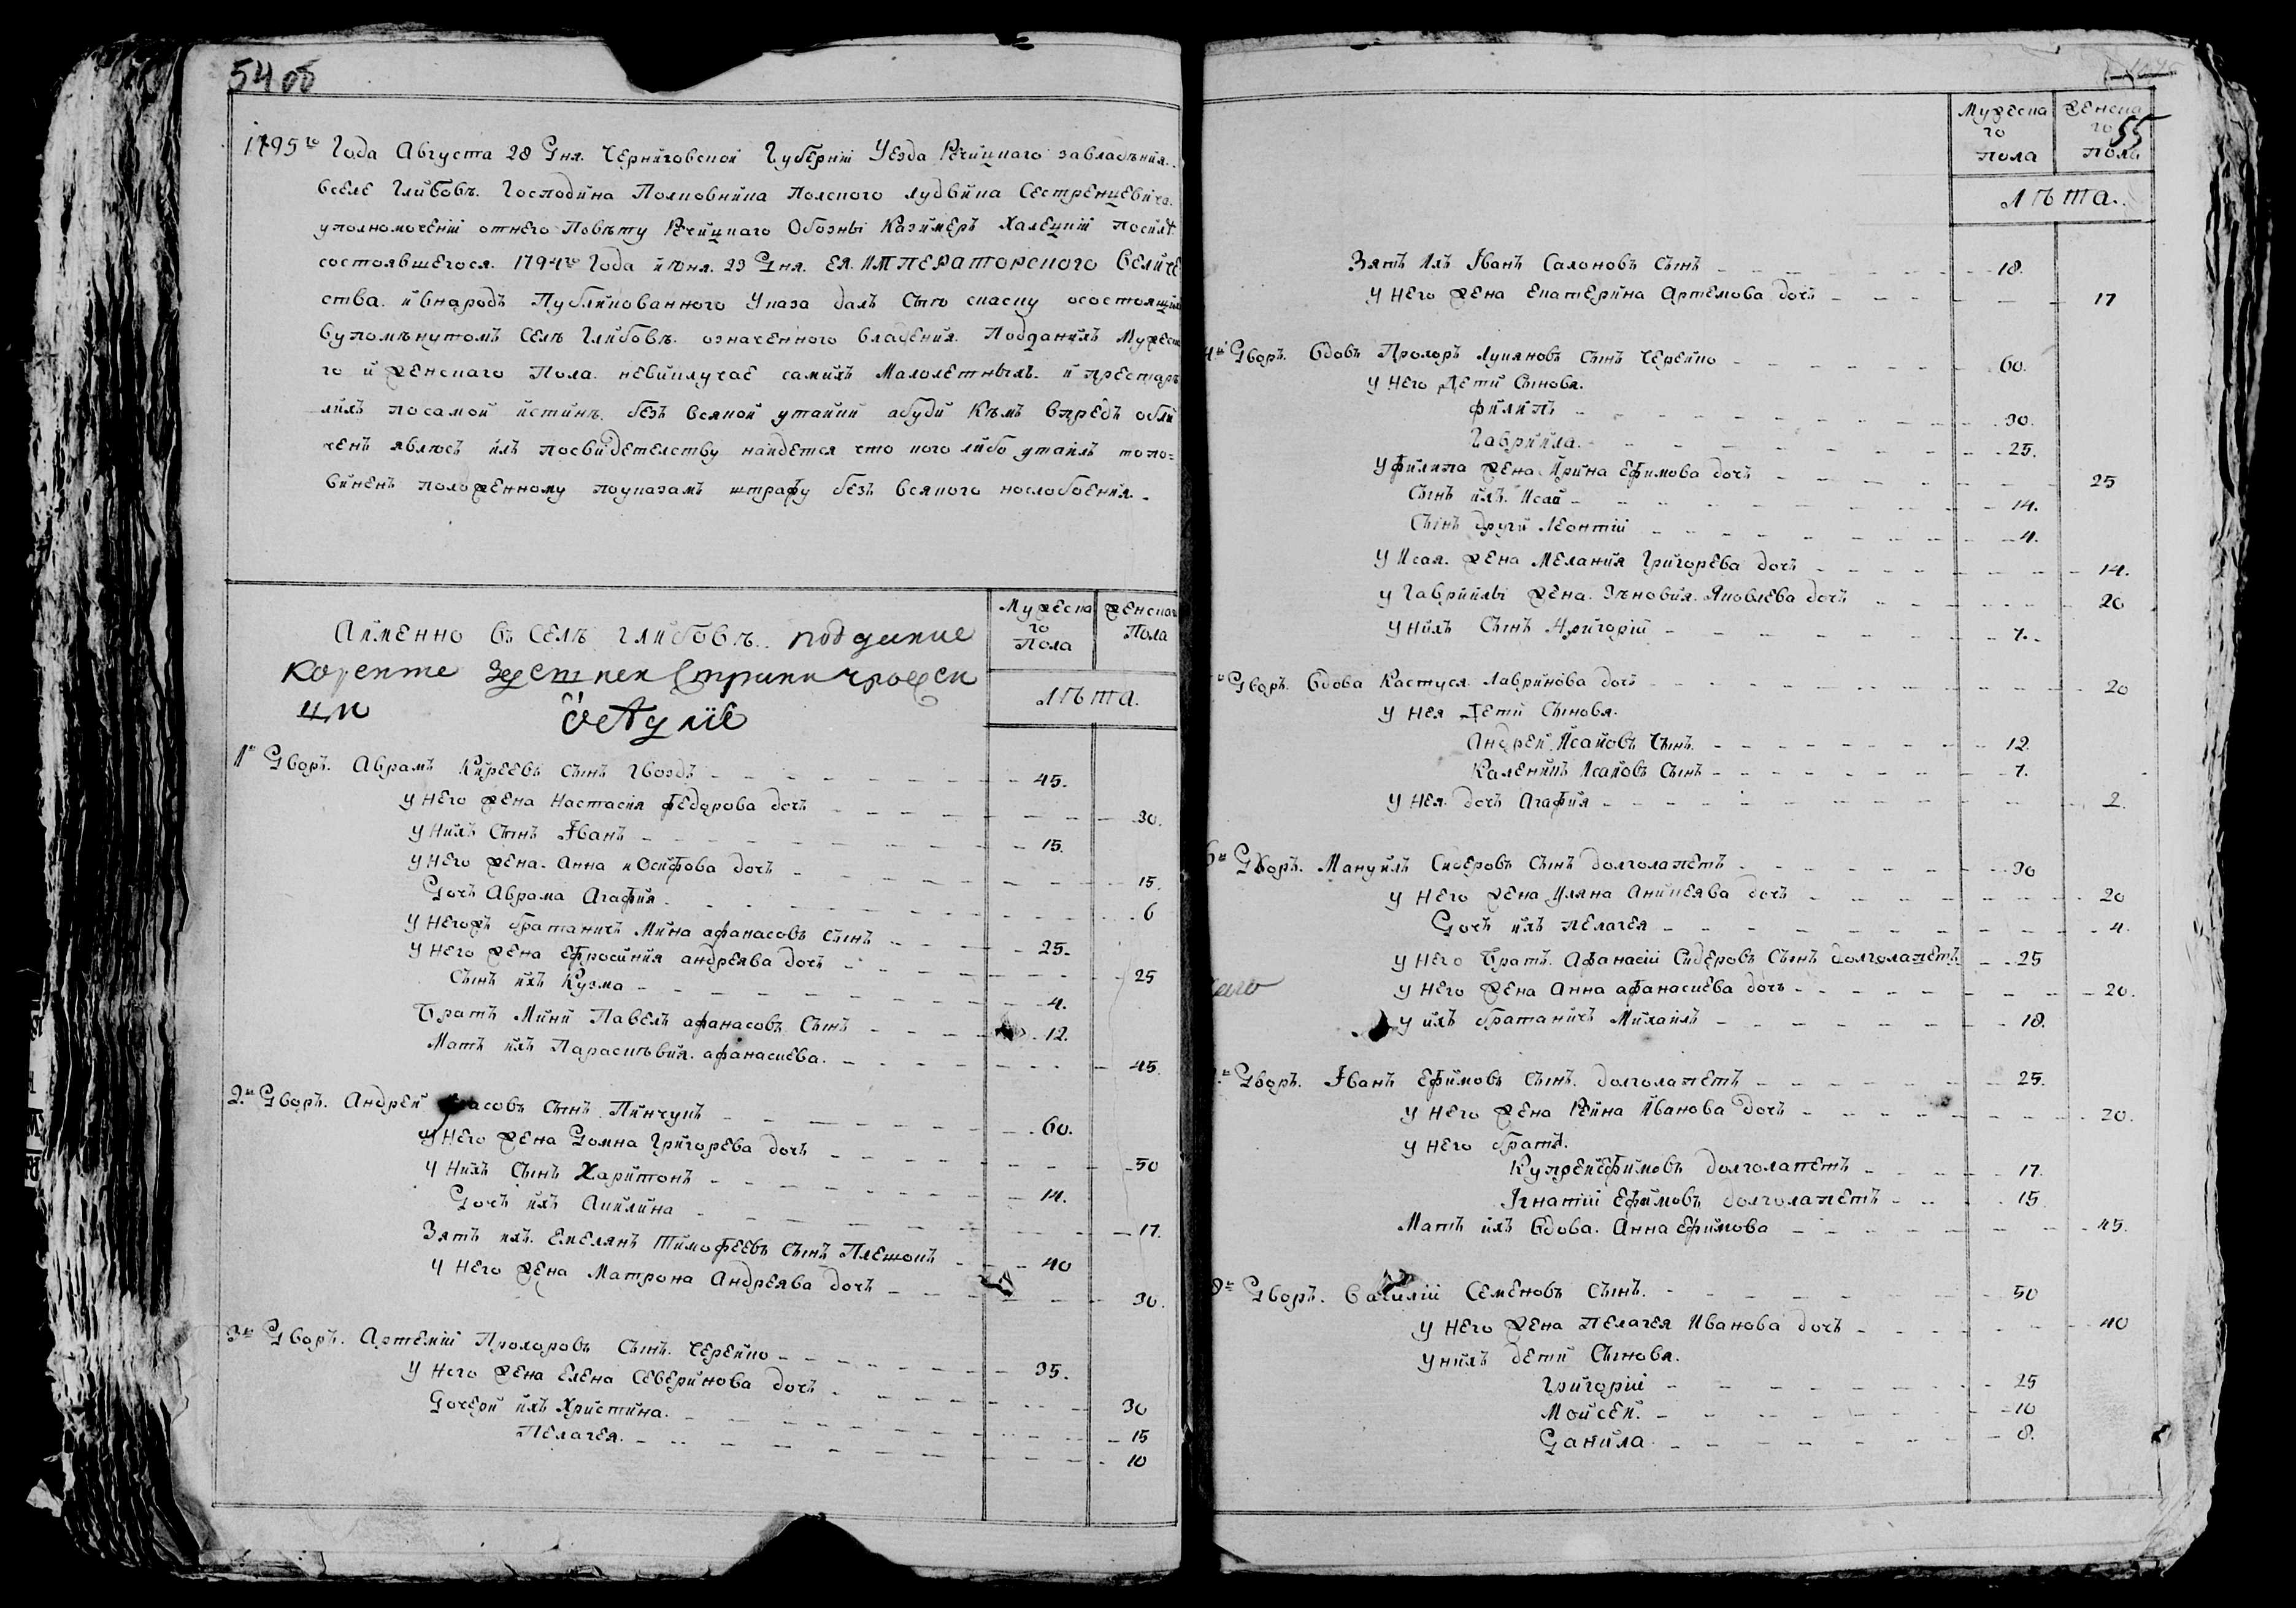 54 об
1795го Года Августа 28 Дня. Черниговской Губернїи Уезда Речицкаго завладѣния.
вселе Глибовъ. Господина Полковника Полского Лудвика Сестренцевича.
уполномоченїи отнего Повѣту Речицкаго Обозны Казимеръ Халецкїи посилѣ
состоявшегося. 1794го Года июня. 23 Дня. ЕЯ. ИМПЕРАТОРСКОГО Величе
ства. ивнародъ Публикованного Указа далъ Сыю скаску осостоящихъ
вупомѣнутомъ Селѣ Глибовъ. означенного владения. Подданихъ Мужеска
го и женскаго Пола. невиключае самихъ Малолетныхъ. и престаре
лихъ посамои истинѣ. безъ всякои утаики абуди Кѣмъ впредъ обли
ченъ явлюсъ илъ посвидетелству наидется что кого либо утаилъ топо=
виненъ положенному поуказамъ штрафу безъ всякого послобоения.
Аименно въ Селѣ Глибовъ.
Мужеска
го
Пола
женскаго
Пола
Лѣта.
1й Дворъ. Аврамъ Киреевъ сынъ Гвоздъ 45.
у Него жена Настасия Федорова дочъ 30.
у Нихъ Сынъ Iванъ 15.
у Него жена. Анна иОсифова дочъ 15.
Дочъ Аврама Агафия. 6
у Негожъ братаничъ Мина афанасовъ Сынъ 25.
у Него жена Ефросиния андреява дочъ 25
Сынъ ихъ Кузма 4.
Братъ Мини Павелъ афанасовъ Сынъ 12.
Матъ ихъ Парасковия. афанасиева. 45.
2й Дворъ. Андреи асовъ Сынъ Пинчукъ 60.
у Него жена Домна Григорева дочъ 50
у Нихъ Сынъ Харитонъ 14.
Дочъ ихъ Акилина 17.
Зять ихъ. Емелянъ Тимофеевъ Сынъ Плешокъ 40
у Него жена Матрона Андреява дочъ 30.
3й Дворъ. Артемїи Прохоровъ Сынъ. Черейко 35.
у Него жена Елена Северинова дочъ 30
Дочери ихъ Христина. 15
Пелагея. 10
55
Мужеска
го
пола
женска
го
пола
Лѣта.
Зять Ихъ Iванъ Сахоновъ Сынъ 18.
у Него жена Екатерина Артемова дочъ 17
4й Дворъ. Вдовъ Прохоръ Лукяновъ Сынъ Черейко 60.
у Него Дети Сыновя.
Филипъ 30.
Гавриила. 25.
у Филипа жена Ирина Ефимова дочъ 25
Сынъ ихъ. Исай 14.
Сынъ други Леонтїи 4.
у Исая. жена Мелания Григорева дочъ 14.
у Гавриилы жена. Зѣновия. Яковлева дочъ 20
у Нихъ Сынъ Григорїи 7.
Дворъ. Вдова Кастуся Лавринова дочъ 20
у Нея Дети Сыновя.
Андреи Исаковъ Сынъ. 12.
Каленикъ Исаковъ Сынъ 7.
у Нея дочъ Агафия 2.
6й Дворъ. Мануилъ Сидеровъ Сынъ долголапетъ 30
у Него жена Уляна Аникеява дочъ 20
Дочъ ихъ Пелагея 4.
у Него Братъ. Афанасїи Сидеровъ Сынъ долголапетъ 25
у Него жена Анна афанасиева дочъ 20.
у ихъ братаничъ Михаилъ 18.
Дворъ. Iванъ Ефимовъ Сынъ. долголапетъ 25.
у Него жена Реина Иванова дочъ 20.
у Него братя.
Купреи Ефимовъ долголапетъ 17.
Iгнатїи Ефимовъ долголапетъ 15
Матъ ихъ Вдова. Анна Ефимова 45.
8й Дворъ. Василїи Семеновъ Сынъ. 50
у Него жена Пелагея Иванова дочъ 40
унихъ дети Сыновя.
Григорїи 25
Моисеи. 10
Данила. 8.